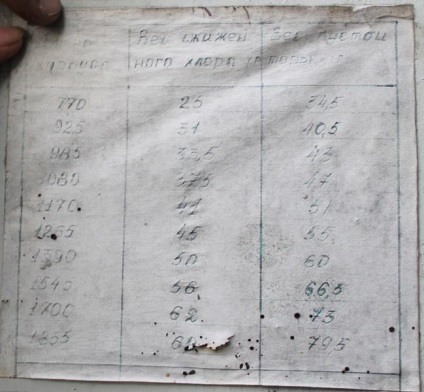 Вес сжижен Вес пустой
ного хлора
770 25 34,5
925 31 40,5
985 33,5 43
1080 37,5 47
1170 41 51
1265 45 55
1390 50 60
1540 56 66,5
1700 62 73
1855 79,5